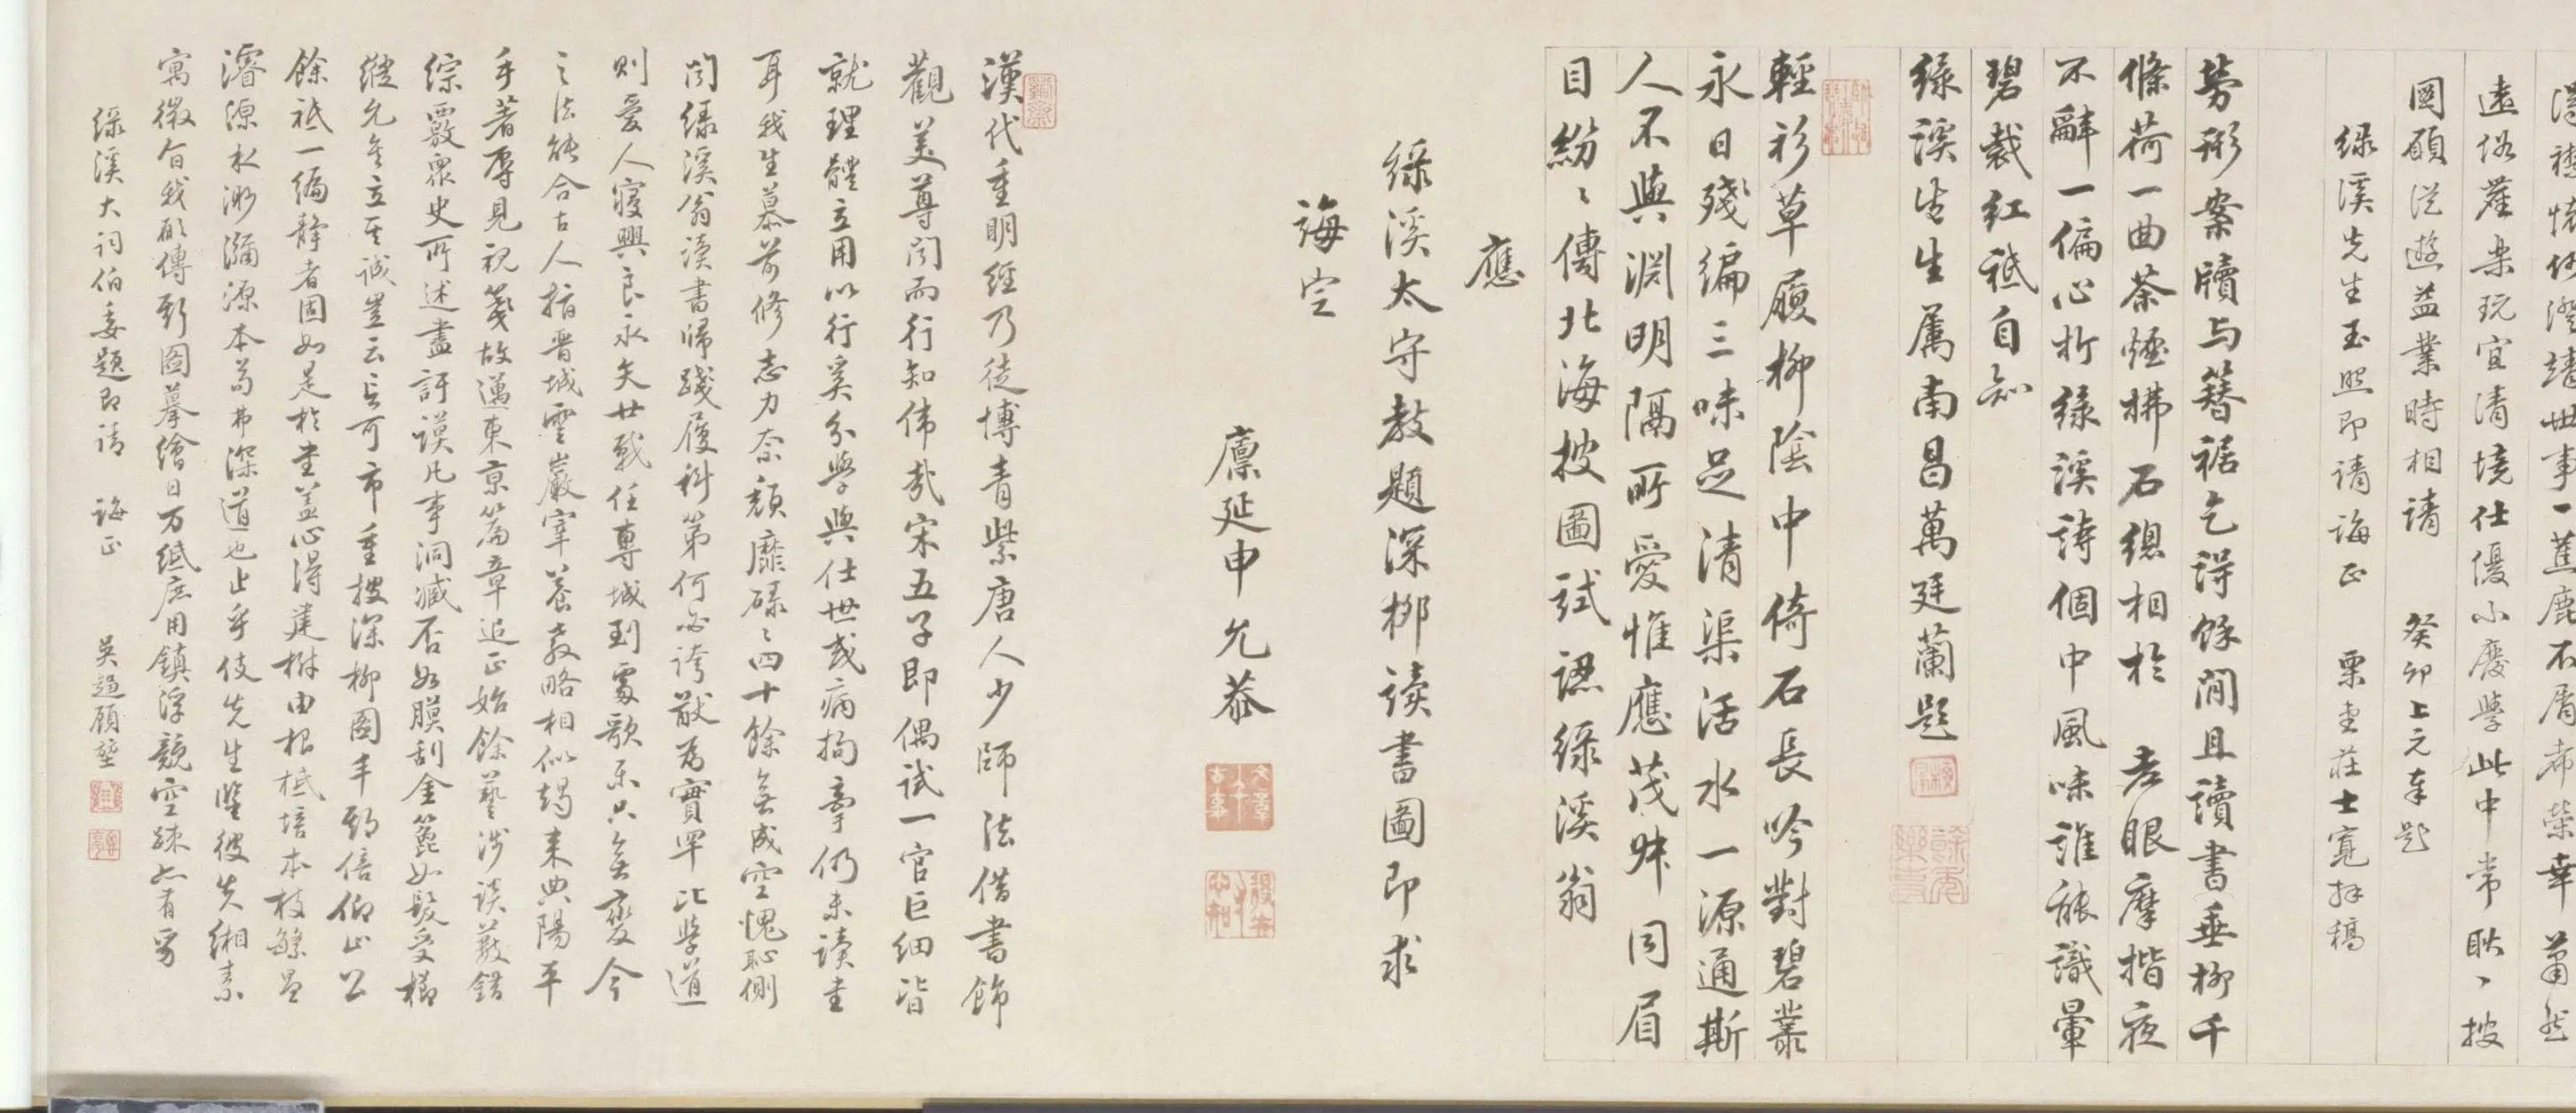 遠俗塵樂玩宜清境仕優小廢學此中常耿、披
圖願從遊益業時相請 癸卯上元奉題
綠溪先生玉照即請誨正 栗堂莊士寬拜稿
勞形案牘与簪裾乞得餘閒且讀書垂柳千
條荷一曲茶煙拂石總相於 老眼摩揩夜
不辭一偏心折綠溪詩個中風味誰能識暈
碧裁紅祗自知
綠溪先生屬南昌萬廷蘭題
輕衫草履柳陰中倚石長吟對碧叢
永日殘編三味足清渠活水一源通斯
人不與淵明隔所愛惟應茂叔同眉
目紛〻傳北海披圖試認綠溪翁
應
綠溪太守教題深柳读書圖即求
誨定
廪延申允恭
漢代重明經乃徒博青紫唐人少師法借書飾
觀美尊聞而行知偉哉宋五子即偶試一官巨細皆
就理體立用以行奚分學與仕世或病拘牽仍未讀書
耳我生慕前修志力奈頹靡碌〻四十餘無成空愧恥側
聞綠溪翁读書歸踐履科第何必誇猷為實罕比學道
則愛人寢興良永矣廿載任專城到處歌樂只無變今
之法能合古人指晋城雲巖宰養教略相似朅来典陽平
手著厚見祝箋故邁東京篇章追正始餘藝涉談藪錯
綜覈衆史所述盡訏謨凡事洞臧否如膜刮金篦如髮受櫛
縰允矣立其誠豈云言可市重披深柳图丰頭倍仰止公
餘祗一編静者固如是於書蓋心得建樹由根柢培本枝繁昌
濬源水瀰瀰源本苟弗深道也止乎伎先生鑒彼失緗素
寓微旨我願傳斯圖摹繪日万紙庶用鎮浮競空疎亦有芻
綠溪大詞伯委題即請 誨正 吳趨顧堃